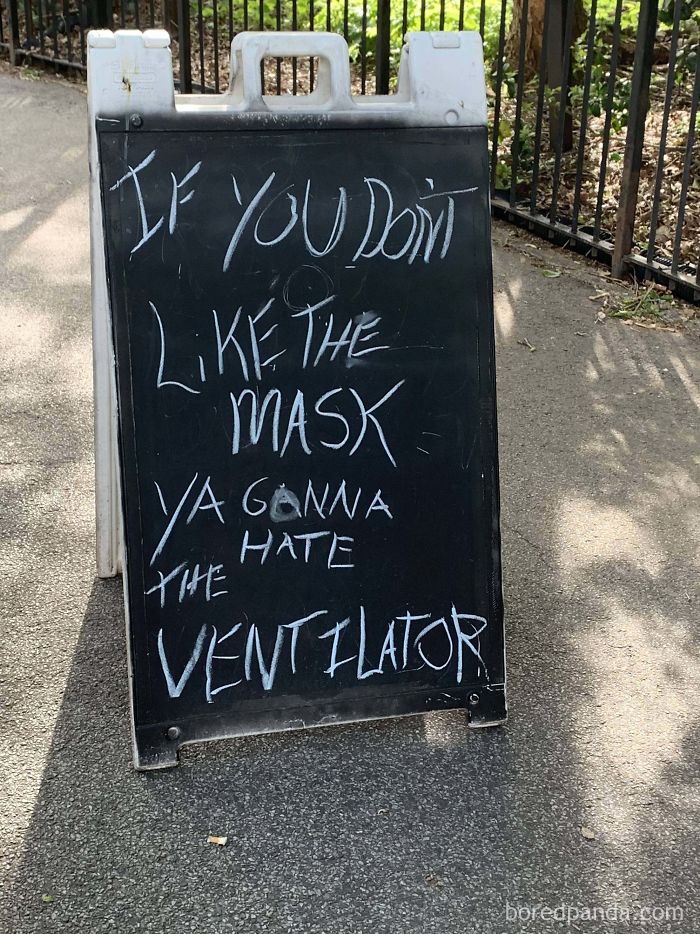 IF YOU DON'T
LIKE THE
MASK
YA GANNA
HATE
THE
VENTILATOR
boredpanda.com